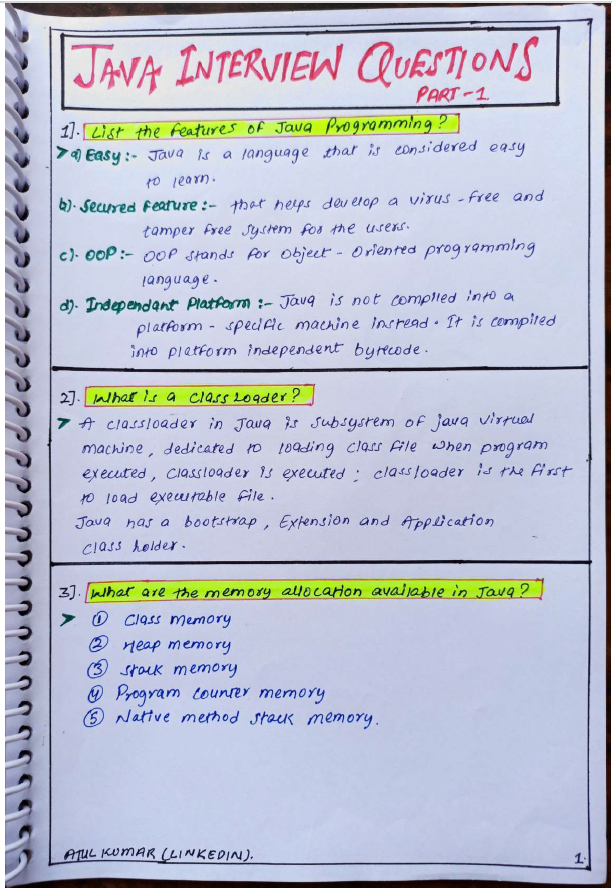 JAVA INTERVIEW QUESTIONS
PART-1
1]. List the features of Java Programming?
a) Easy:- Java is a language that is considered easy
to learn.
b). Secured Feature:- that helps develop a virus-free and
tamper free system for the users.
c). OOP:- OOP stands for Object-Oriented programming
language.
d). Independant Platform:- Java is not compiled into a
platform-specific machine instead. It is compiled
into platform independent bytecode.
2]. What is a Class Loader?
A classloader in Java is subsystem of java virtual
machine, dedicated to loading class file when program
executed, classloader is executed; classloader is the first
to load executable file.
Java has a bootstrap, Extension and Application
class holder.
3]. What are the memory allocation available in Java?
① Class memory
② Heap memory
③ Stack memory
④ Program counter memory
⑤ Native method stack memory.
ATUL KUMAR (LINKEDIN).
1.